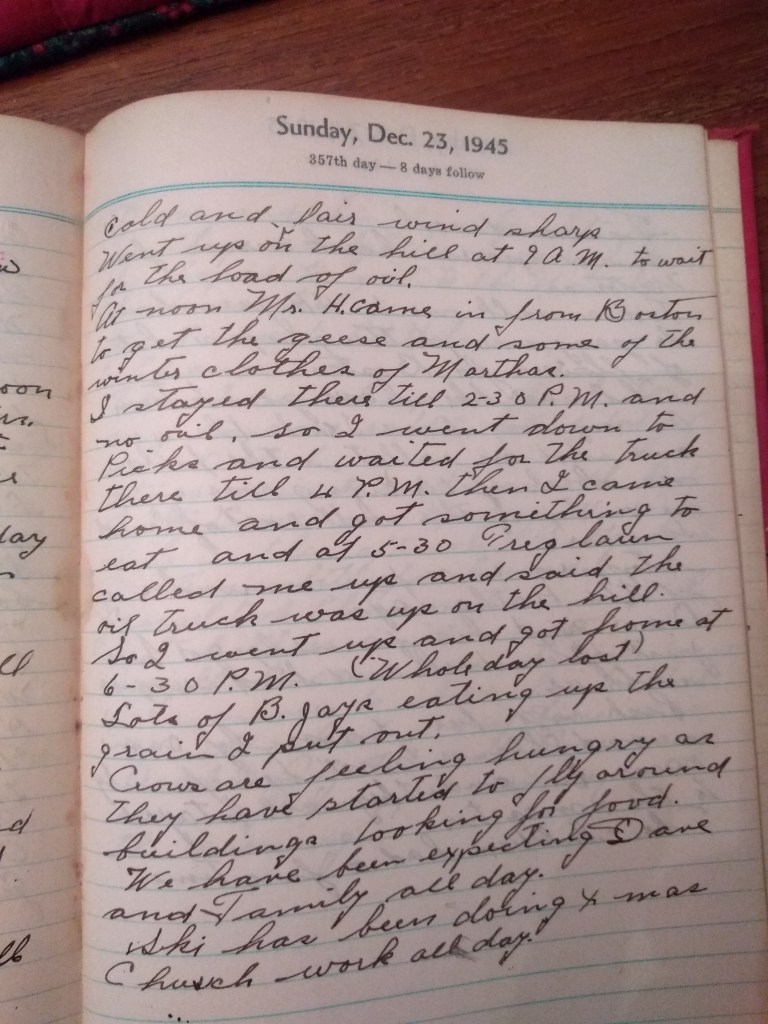 Sunday, Dec. 23, 1945
357th day — 8 days follow
Cold and fair wind sharp
Went up on the hill at 9 A.M. to wait
for the load of oil.
At noon Mr. H. came in from Boston
to get the geese and some of the
winter clothes of Marthas.
I stayed there till 2-30 P.M. and
no oil, so I went down to
Picks and waited for the truck
there till 4 P.M. then I came
home and got something to
eat and at 5-30
called me up and said the
oil truck was up on the hill.
So I went up and got home at
6-30 P.M. (Whole day lost)
Lots of B. Jays eating up the
grain I put out.
Crows are feeling hungry as
they have started to fly around
buildings looking for food.
We have been expecting Dave
and Family all day.
Ski has been doing Xmas
Church work all day.
oon
day